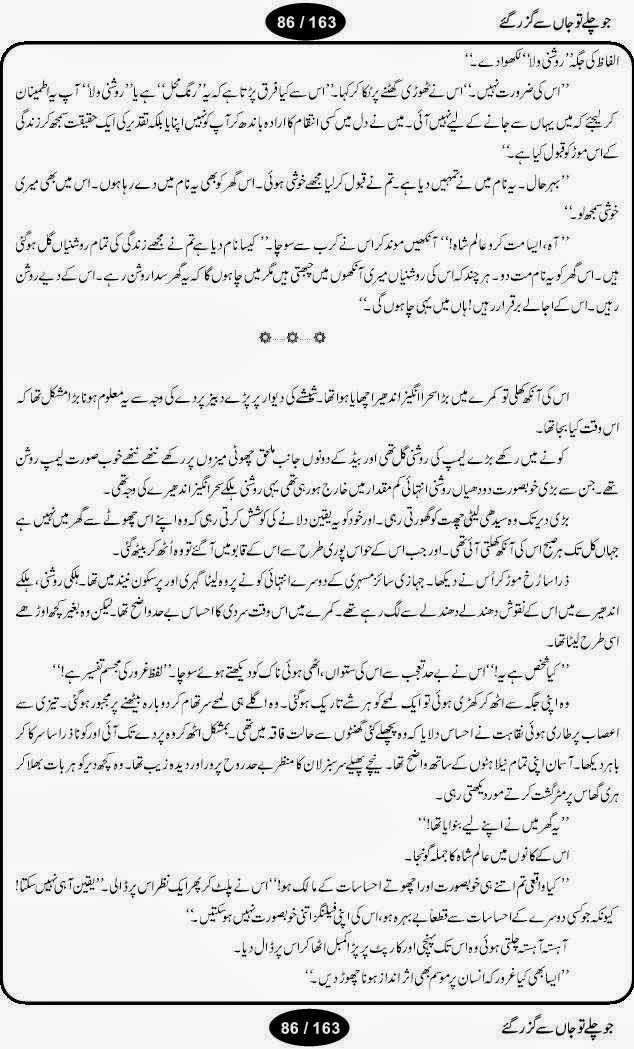 جو چلے تو جاں سے گزر گئے
86 / 163
الفاظ کی جگہ ’’روشنی ولا‘‘ لکھوا دے۔‘‘
’’اس کی ضرورت نہیں۔‘‘ اس نے ٹھوڑی گھٹنے پر ٹکا کر کہا۔ ’’اس سے کیا فرق پڑتا ہے کہ یہ ’’رنگ محل‘‘ ہے یا ’’روشنی ولا‘‘ آپ یہ اطمینان
کر لیجئے کہ میں یہاں سے جانے کے لیے نہیں آئی۔ میں نے دل میں کسی انتقام کا ارادہ باندھ کر آپ کو نہیں اپنایا بلکہ تقدیر کی ایک حقیقت سمجھ کر زندگی
کے اس موڑ کو قبول کیا ہے۔‘‘
’’بہرحال۔ یہ نام میں نے تمہیں دیا ہے۔ تم نے قبول کر لیا مجھے خوشی ہوئی۔ اس گھر کو بھی یہ نام میں دے رہا ہوں۔ اس میں بھی میری
خوشی سمجھ لو۔‘‘
’’آہ، ایسا مت کرو عالم شاہ!‘‘ آنکھیں موند کر اس نے کرب سے سوچا۔ ’’کیسا نام دیا ہے تم نے مجھے زندگی کی تمام روشنیاں گل ہو گئی
ہیں۔ اس گھر کو یہ نام مت دو۔ ہر چند کہ اس کی روشنیاں میری آنکھوں میں چبھتی ہیں مگر میں چاہوں گا کہ یہ گھر سدا روشن رہے۔ اس کے دیے روشن
رہیں۔ اس کے اجالے برقرار رہیں! ہاں میں یہی چاہوں گی۔‘‘
اس کی آنکھ کھلی تو کمرے میں بڑا سحر انگیز اندھیرا چھایا ہوا تھا۔ شیشے کی دیوار پر پڑے دبیز پردے کی وجہ سے یہ معلوم ہونا بڑا مشکل تھا کہ
اس وقت کیا بجا تھا۔
کونے میں رکھے بڑے لیمپ کی روشنی گل تھی اور بیڈ کے دونوں جانب ملحق چھوٹی میزوں پر رکھے ننھے ننھے خوب صورت لیمپ روشن
تھے۔ جن سے بڑی خوبصورت دودھیاں روشنی انتہائی کم مقدار میں خارج ہو رہی تھی یہی روشنی ہلکے سحر انگیز اندھیرے کی وجہ تھی۔
بڑی دیر تک وہ سیدھی لیٹی چھت کو گھورتی رہی۔ اور خود کو یہ یقین دلانے کی کوشش کرتی رہی کہ وہ اپنے اس چھوٹے سے گھر میں نہیں ہے
جہاں کل تک ہر صبح اس کی آنکھ کھلتی آئی تھی۔ اور جب اس کے حواس پوری طرح سے اس کے قابو میں آ گئے تو وہ اُٹھ کر بیٹھ گئی۔
ذرا سا رُخ موڑ کر اُس نے دیکھا۔ جہازی سائز مسہری کے دوسرے انتہائی کونے پر وہ لیٹا گہری اور پرسکون نیند میں تھا۔ ہلکی روشنی، ہلکے
اندھیرے میں اس کے نقوش دھندلے دھندلے سے لگ رہے تھے۔ کمرے میں اس وقت سردی کا احساس بے حد واضح تھا۔ لیکن وہ بغیر کچھ اوڑھے
اسی طرح لیٹا تھا۔
’’کیا شخص ہے یہ!‘‘ اس نے بے حد تعجب سے اس کی ستواں، اٹھی ہوئی ناک کو دیکھتے ہوئے سوچا۔ ’’لفظ غرور کی مجسم تفسیر ہے!‘‘
وہ اپنی جگہ سے اٹھ کر کھڑی ہوئی تو ایک لمحے کو ہر شے تاریک ہو گئی۔ وہ اگلے ہی لمحے سر تھام کر دوبارہ بیٹھنے پر مجبور ہو گئی۔ تیزی سے
اعصاب پر طاری ہوئی نقاہت نے احساس دلایا کہ وہ پچھلے کئی گھنٹوں سے حالت فاقہ میں تھی۔ بمشکل اٹھ کر وہ پردے تک آئی اور کونا ذرا سا سرکا کر
باہر دیکھا۔ آسمان اپنی تمام نیلاہٹوں کے ساتھ واضح تھا۔ نیچے پھیلے سرسبز لان کا منظر بے حد روح پرور اور دیدہ زیب تھا۔ وہ کچھ دیر کو ہر بات بھلا کر
ہری گھاس پر مٹرگشت کرتے مور دیکھتی رہی۔
’’یہ گھر میں نے اپنے لیے بنوایا تھا!‘‘
اس کے کانوں میں عالم شاہ کا جملہ گونجا۔
’’کیا واقعی تم اتنے ہی خوبصورت اور اچھوتے احساسات کے مالک ہو!‘‘ اس نے پلٹ کر پھر ایک نظر اس پر ڈالی۔ ’’یقین آ ہی نہیں سکتا!
کیونکہ جو کسی دوسرے کے احساسات سے قطعاً بے بہرہ ہو، اس کی اپنی فیلنگز اتنی خوبصورت نہیں ہو سکتیں۔‘‘
آہستہ آہستہ چلتی ہوئی وہ اس تک پہنچی اور کارپٹ پر پڑا کمبل اٹھا کر اس پر ڈال دیا۔
’’ایسا بھی کیا غرور کہ انسان پر موسم بھی اثر انداز ہونا چھوڑ دیں۔‘‘
جو چلے تو جاں سے گزر گئے
86 / 163